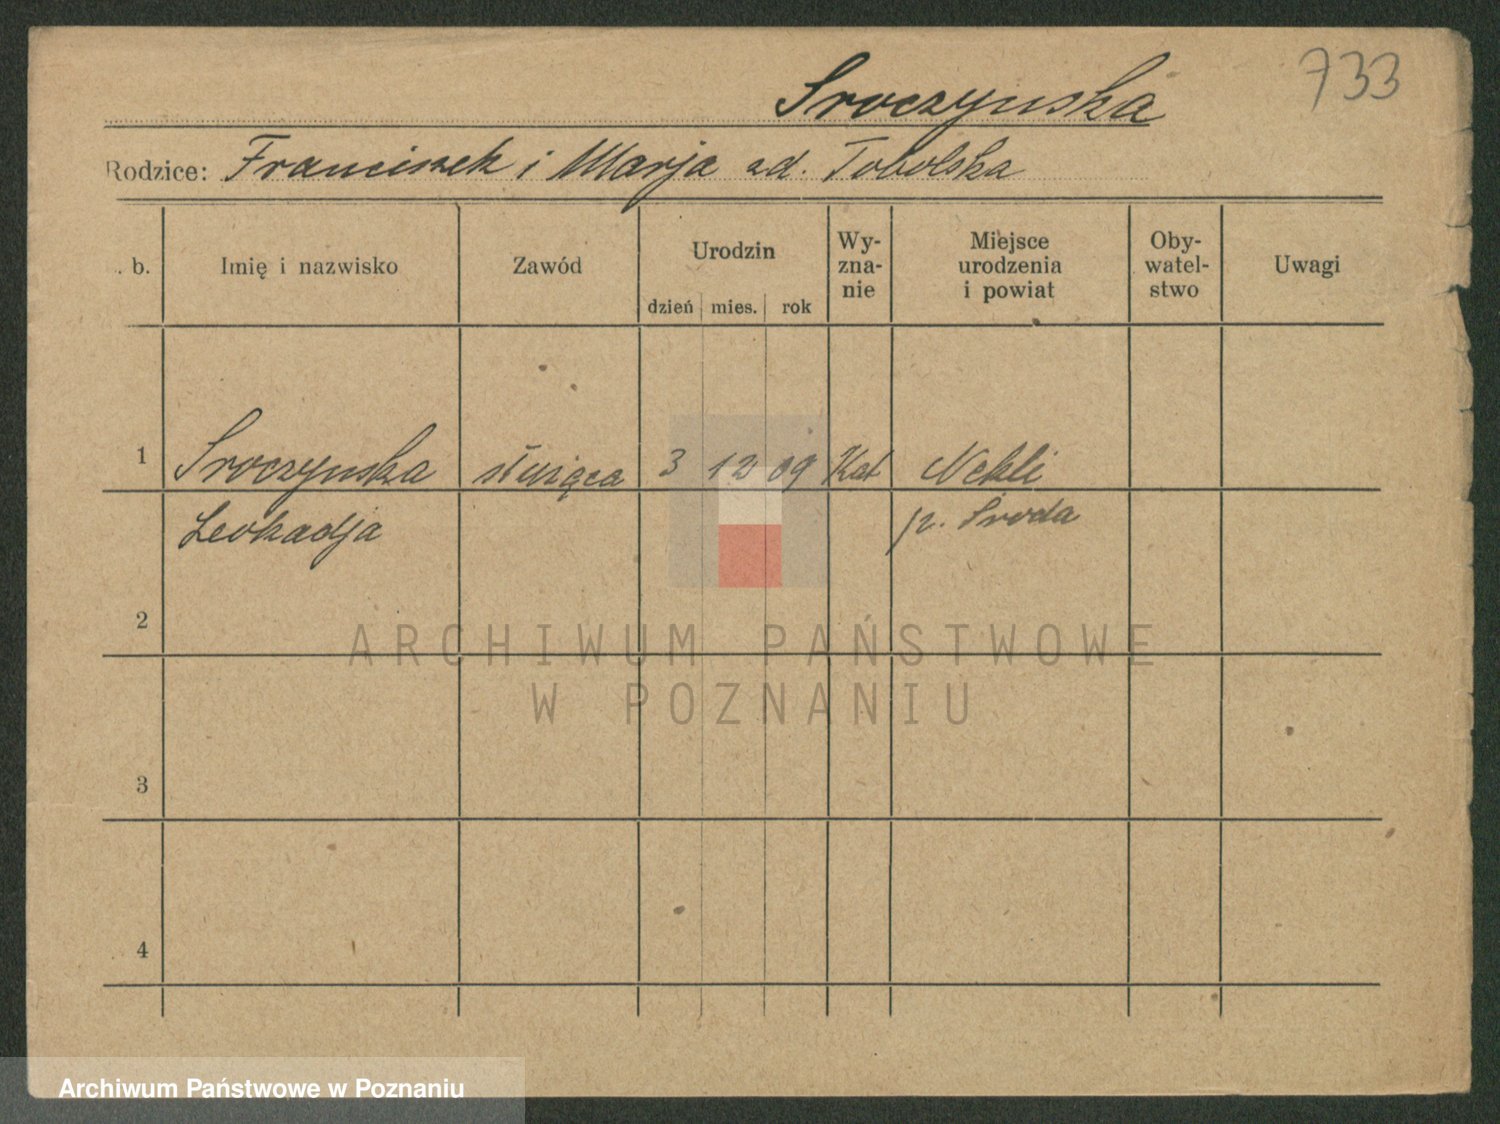 Sroczynska
733
Rodzice: Franciszek i Marja zd. Tobolska
. b.
Imię i nazwisko
Zawód
Urodzin
dzień mies. rok
Wy-
zna-
nie
Miejsce
urodzenia
i powiat
Oby-
watel-
stwo
Uwagi
1 Sroczynska służąca 3 12 09 Kat Nekli
Leokadja p. Sroda
2
ARCHIWUM PAŃSTWOWE
W POZNANIU
3
4
Archiwum Państwowe w Poznaniu